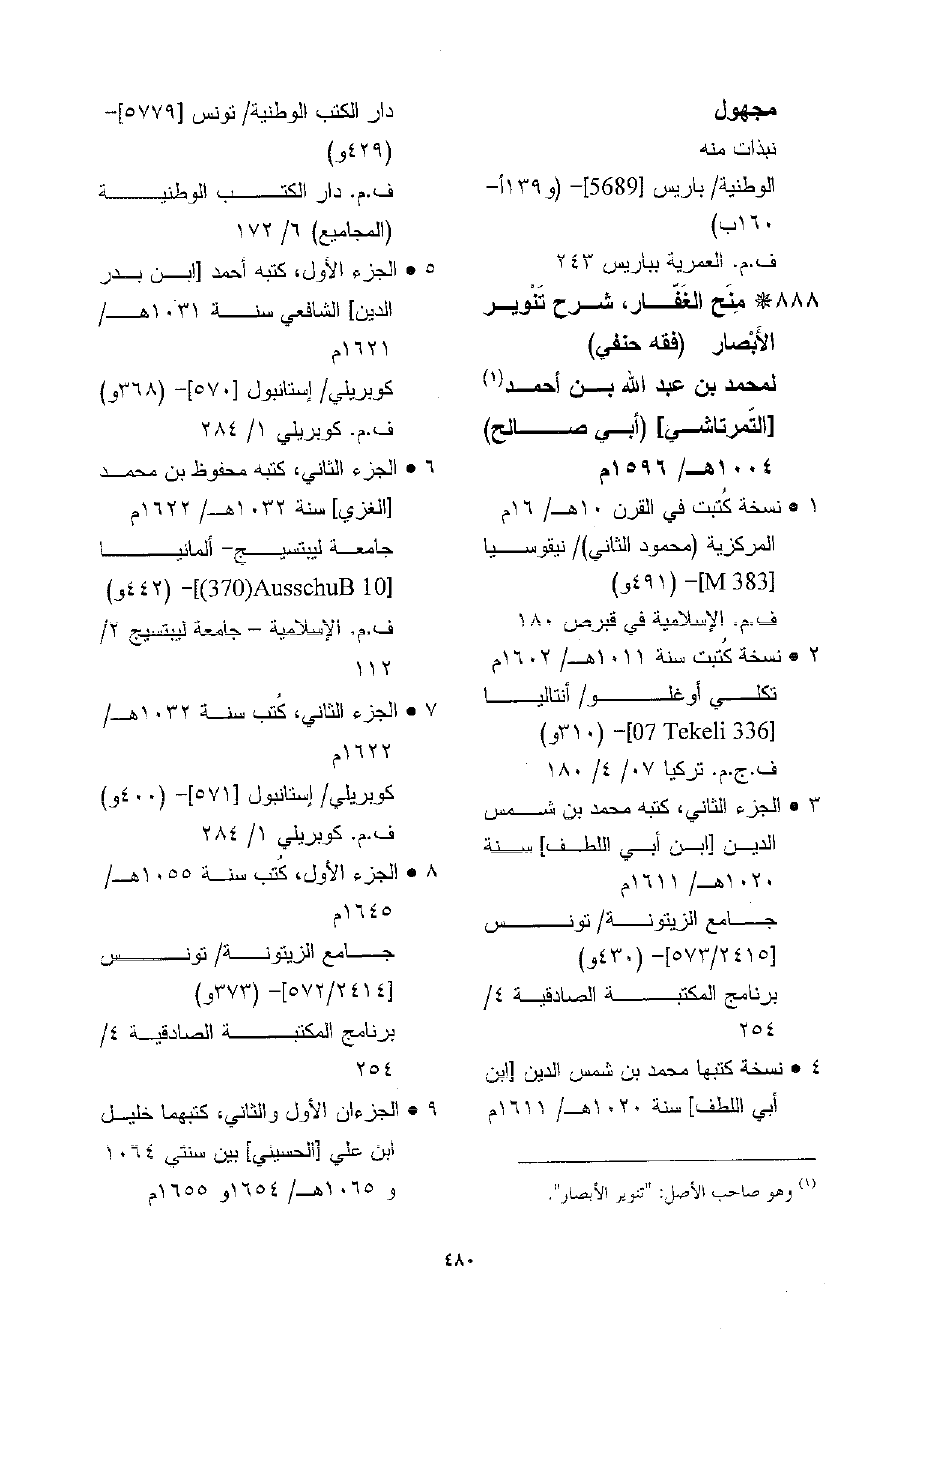 مجهول
نبذات منه
الوطنية/ باريس [5689]- (و١٣٩أ-
١٦٠ب)
ف.م. العمرية بباريس ٢٤٣
٨٨٨* مِنَح الغَفَّـــار، شـرح تَنْويـر
الأَبْصار (فقه حنفي)
لمحمد بن عبد الله بـــن أحمـد(١)
[التُّمرتاشــي] (أبـي صـــالح)
١٠٠٤هـ/ ١٥٩٦م
١ • نسخة كُتبت في القرن ١٠هـ/ ١٦م
المركزية (محمود الثاني)/ نيقوســيا
[M 383]- (٤٩١و)
ف.م. الإسلامية في قبرص ١٨٠
٢ • نسخة كُتبت سنة ١٠١١هـ/ ١٦٠٢م
تكلـــي أوغلـــــو/ أنتاليـــا
[07 Tekeli 336]- (٣١٠و)
ف.ج.م. تركيا ٠٧/ ٤/ ١٨٠
٣ • الجزء الثاني، كتبه محمد بن شــمس
الديـن [ابـن أبـي اللطـف] سـنة
١٠٢٠هـ/ ١٦١١م
جـــامع الزيتونــــة/ تونـــس
[٥٧٣/٢٤١٥]- (٤٣٠و)
برنامج المكتبــــــة الصادقيـة ٤/
٢٥٤
٤ • نسخة كتبها محمد بن شمس الدين [ابن
أبي اللطف] سنة ١٠٢٠هـ/ ١٦١١م
(١) وهو صاحب الأصل: "تنوير الأبصار".
دار الكتب الوطنية/ تونس [٥٧٧٩]-
(٤٢٩و)
ف.م. دار الكتـــب الوطنيــــة
(المجاميع) ٦/ ١٧٢
٥ • الجزء الأول، كتبه أحمد [ابــن بــدر
الدين] الشافعي سنـــة ١٠٣١هـــ/
١٦٢١م
كوبريلي/ إستانبول [٥٧٠]- (٣٦٨و)
ف.م. كوبريلي ١/ ٢٨٤
٦ • الجزء الثاني، كتبه محفوظ بن محمــد
[الغزي] سنة ١٠٣٢هــ/ ١٦٢٢م
جامعــة ليبتسيـــج- ألمانيـــــا
[AusschuB 10(370)]- (٤٤٢و)
ف.م. الإسلامية - جامعة ليبتسيج ٢/
١١٢
٧ • الجزء الثاني، كُتب سنــة ١٠٣٢هــ/
١٦٢٢م
كوبريلي/ إستانبول [٥٧١]- (٤٠٠و)
ف.م. كوبريلي ١/ ٢٨٤
٨ • الجزء الأول، كُتب سنــة ١٠٥٥هــ/
١٦٤٥م
جـــامع الزيتونــــة/ تونـــس
[٥٧٢/٢٤١٤]- (٣٧٣و)
برنامج المكتبــــــة الصادقيـة ٤/
٢٥٤
٩ • الجزءان الأول والثاني، كتبهما خليـل
ابن علي [الحسيني] بين سنتي ١٠٦٤
و ١٠٦٥هــ/ ١٦٥٤و ١٦٥٥م
٤٨٠